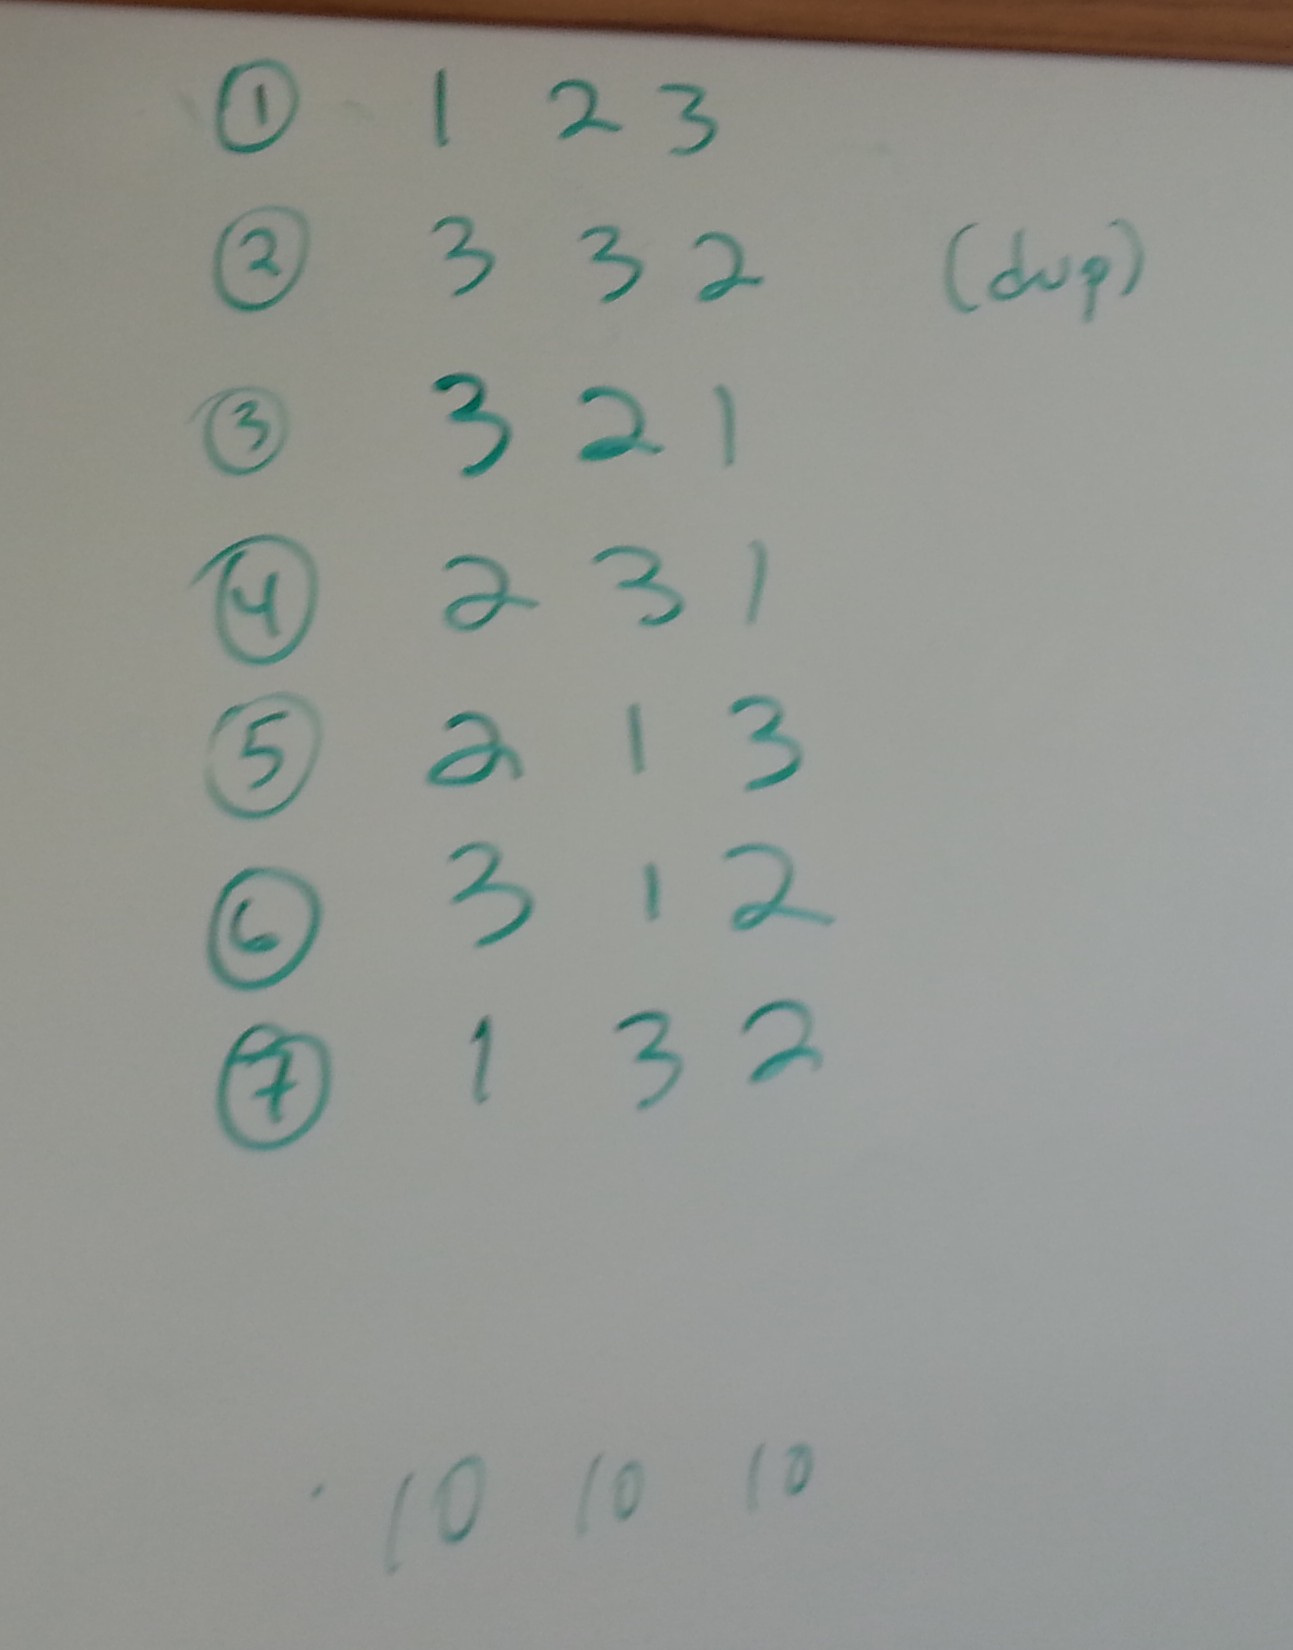 ① 1 2 3
② 3 3 2 (dup)
③ 3 2 1
④ 2 3 1
⑤ 2 1 3
⑥ 3 1 2
⑦ 1 3 2
10 10 10